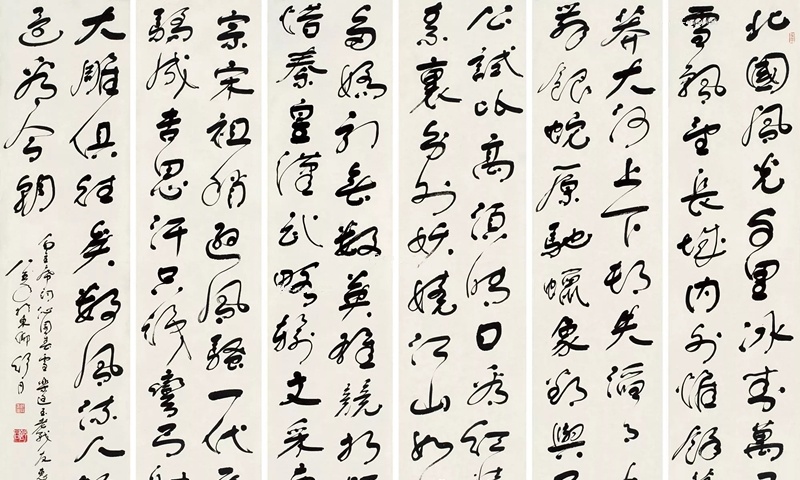 北國風光千里冰封萬
雪飄望長城内外惟餘莽
莽大河上下頓失滔々
舞銀蛇原馳蠟象欲與
公試比高須晴日看紅
素裹分外妖嬈江山如
多嬌引無數英雄競折
惜秦皇漢武略輸文采
宗宋祖稍遜風騷一代
驕成吉思汗只識彎弓射
大雕俱往矣數風流人
還看今朝
毛主席詞沁園春雪